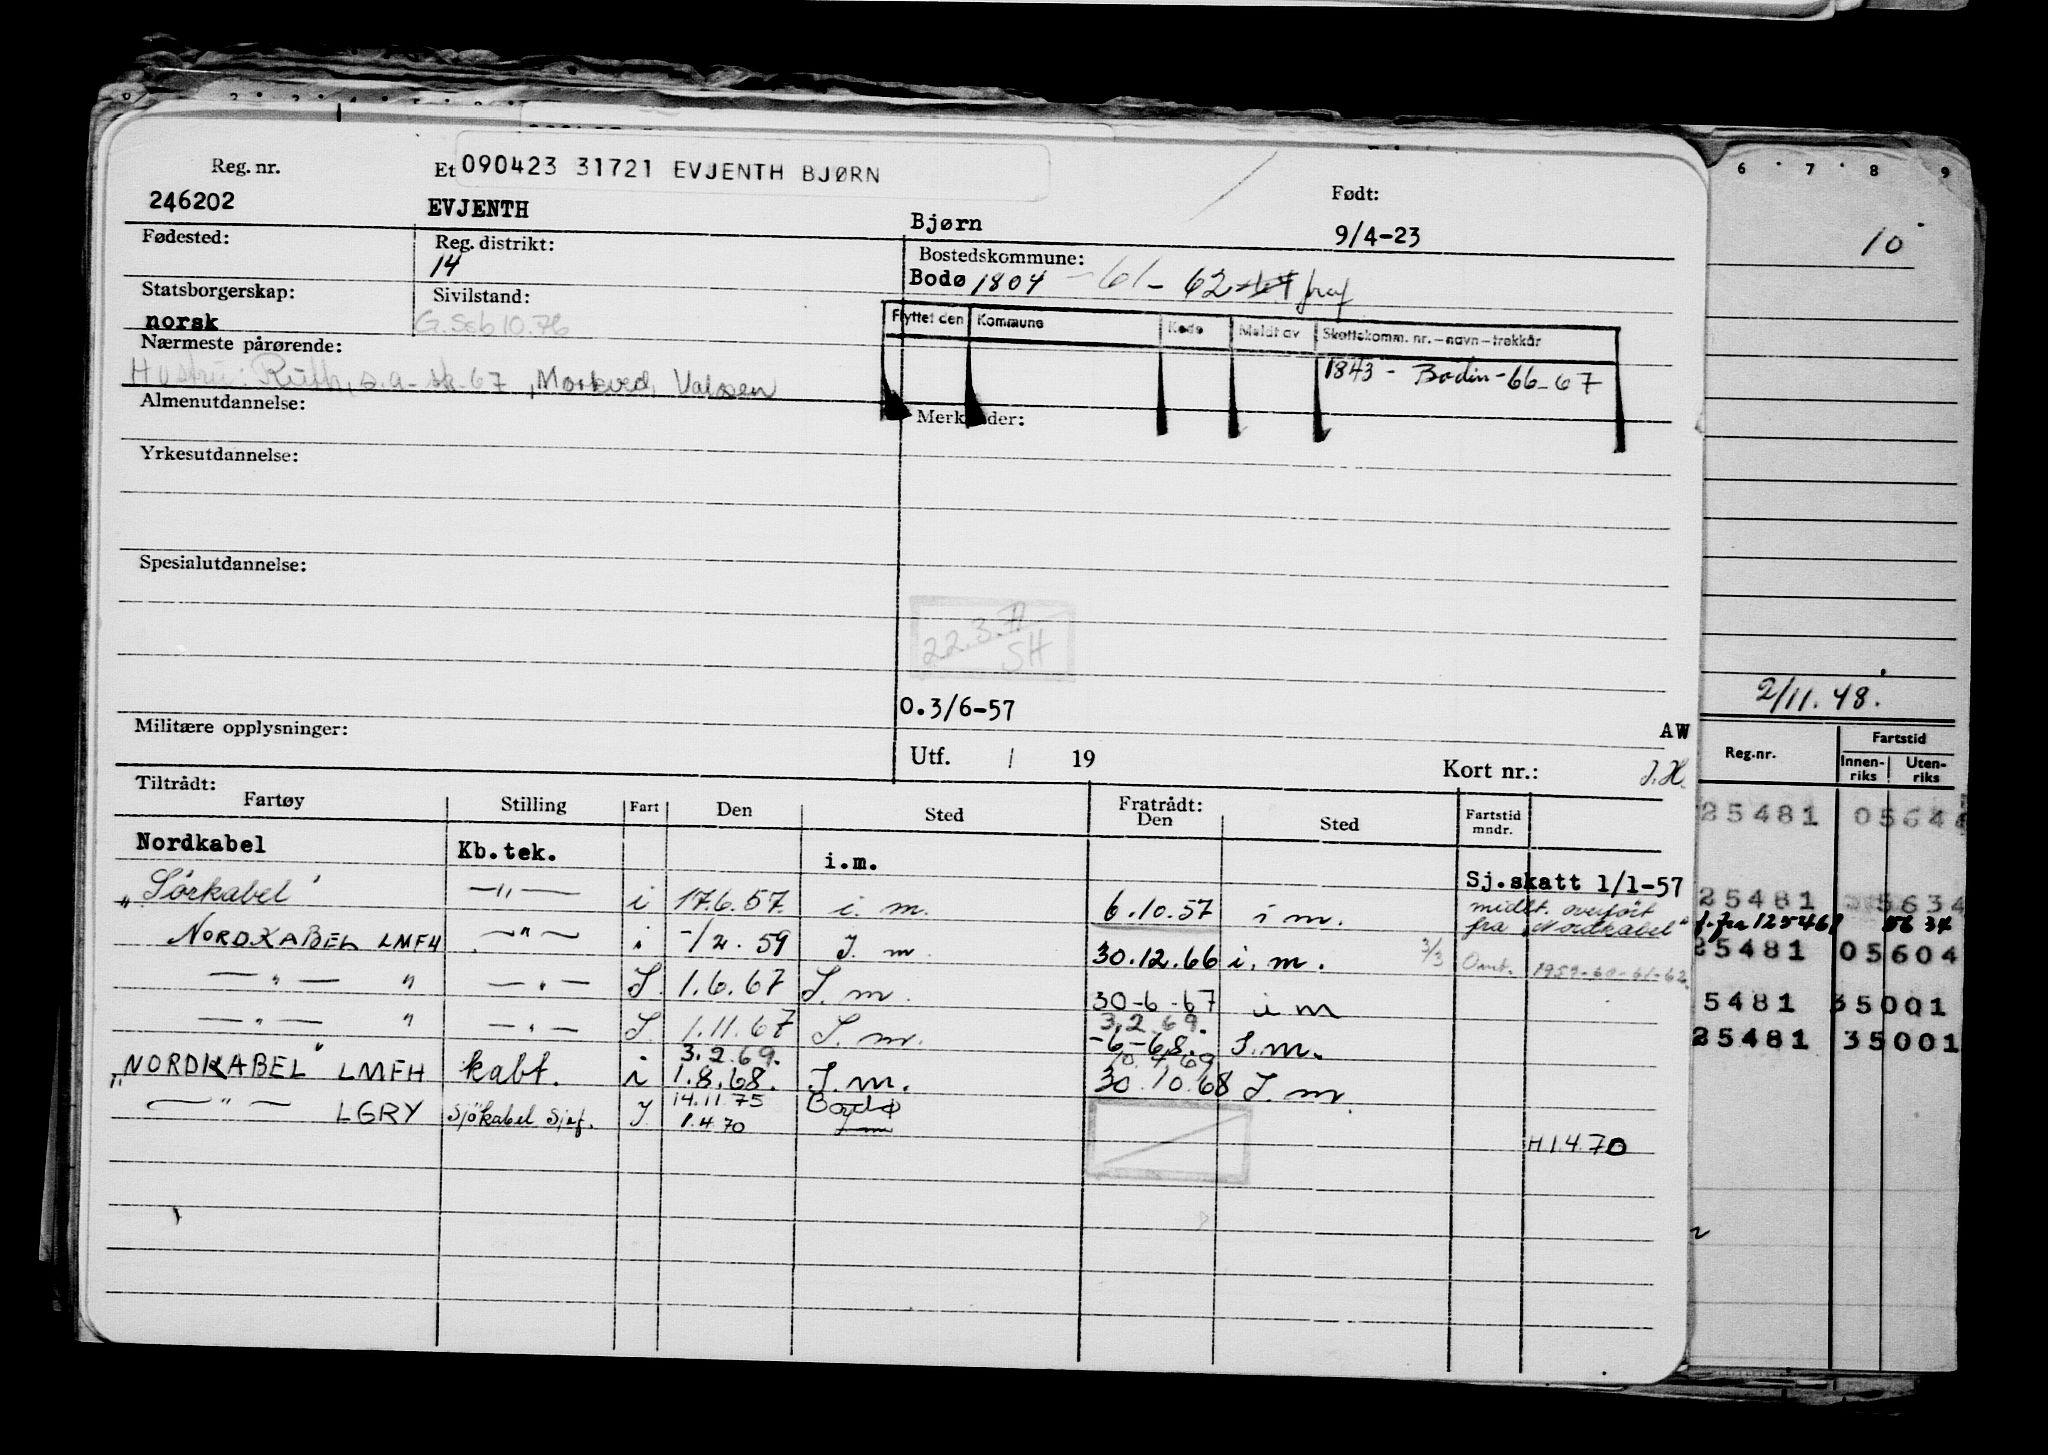 Reg. nr.
Et 090423 31721 EVJENTH BJØRN
Født:
246202 EVJENTH Bjørn 9/4-23
Fødested: Reg. distrikt: Bostedskommune:
14 Bodø 1804 - 61 - 62
Statsborgerskap: Sivilstand:
norsk G. Seb 10.76
Flyttet den Kommune Kode Meldt av Skattekomm. nr. - navn - trekkår
1843 - Bodin - 66 - 67
Nærmeste pårørende:
Hustru: Ruth, s.a. - sk-67, Mørkved, Valosen
Almenutdannelse: Merk der:
Yrkesutdannelse:
Spesialutdannelse:
22.3.71
SH
O.3/6-57
AW
Militære opplysninger: Utf. / 19 Kort nr.: J.H.
Tiltrådt: Fratrådt:
Fartøy Stilling Fart Den Sted Den Sted Fartstid mndr.
Nordkabel Kb.tek. i.m. Sj.skatt 1/1-57
"Sörkabel" —"— i 17.6.57. i.m. 6.10.57 i m. midlt. overfört fra "Nordkabel"
NORDKABEL LMFH —"— i -/2.59 I.m. 30.12.66 i.m. 3/3 Omt. 1959-60-61-62
—"— " —"— I. 1.6.67 I.m. 30-6-67 i m
—"— " —"— I. 1.11.67 I.m. -6-68. I.m.
3.2.69.
"NORDKABEL" LMFH kabt. i 3.2.69. 10.4.69
1.8.68. I.m. 30.10.68 I.m.
—"— LGRY Sjökabel Sjef. I. 14.11.75 Bodø
1.4.70 I m
H.1.4.70
6 7 8 9
10
2/11.48.
Reg.nr. Fartstid
Innen-riks Uten-riks
25481 05644
25481 5634
f. fra 125461 56 34
25481 05604
5481 35001
25481 35001